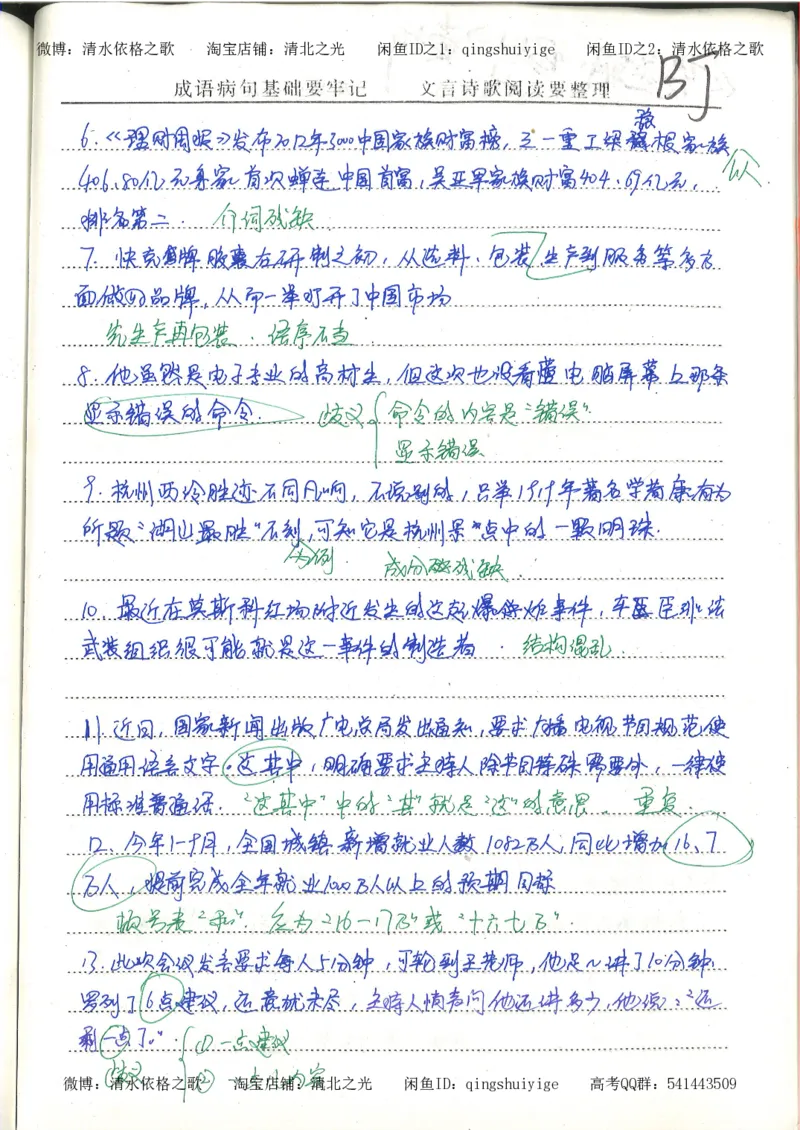 微博：清水依格之歌 淘宝店铺：清北之光 闲鱼ID之1：qingshuiyige 闲鱼ID之2：清水依格之歌
成语病句基础要牢记 文言诗歌阅读要整理
BJ
6.《理财周报》发布2012年3000中国家族财富榜，三一重工梁稳根家族
406.80亿元身家首次蝉连中国首富，吴亚军家族财富404.69亿元，
以
排名第二. 介词残缺
7. 快克牌胶囊在研制之初，从选料、包装、生产到服务等多方
面做的品牌，从而一举打开了中国市场
先生产再包装. 语序不当
8. 他虽然是电子专业的高材生，但这次也没看懂电脑屏幕上那条
显示错误的命令. 歧义 命令的内容是“错误”.
显示错误
9. 杭州西泠胜迹不同凡响，不说别的，只举1919年著名学者康有为
所题“湖山最胜”石刻，可知它是杭州景点中的一颗明珠.
为例 成分残缺.
10. 最近在莫斯科红场附近发生的这起爆炸事件，车臣非法
武装组织很可能就是这一事件的制造者. 结构混乱.
11. 近日，国家新闻出版广电总局发出通知，要求广播电视节目规范使
用通用语言文字。这其中，明确要求主持人除节目特殊需要外，一律使
用标准普通话. “这其中”中的“其”就是“这”的意思. 重复.
12. 今年1-9月，全国城镇新增就业人数1082万人，同比增加16、7
万人，提前完成全年就业1000万人以上的预期目标
顿号表“和”. 应为“16－17万”或“十六七万”.
13. 此次会议发言要求每人5分钟，可轮到王老师，他足足讲了10分钟.
罗列了6点建议，还意犹未尽，主持人悄声问他还讲多少，他说：“还
剩一点了。” ① 一点建议
歧义 ②
微博：清水依格之歌 淘宝店铺：清北之光 闲鱼ID：qingshuiyige 高考QQ群：541443509